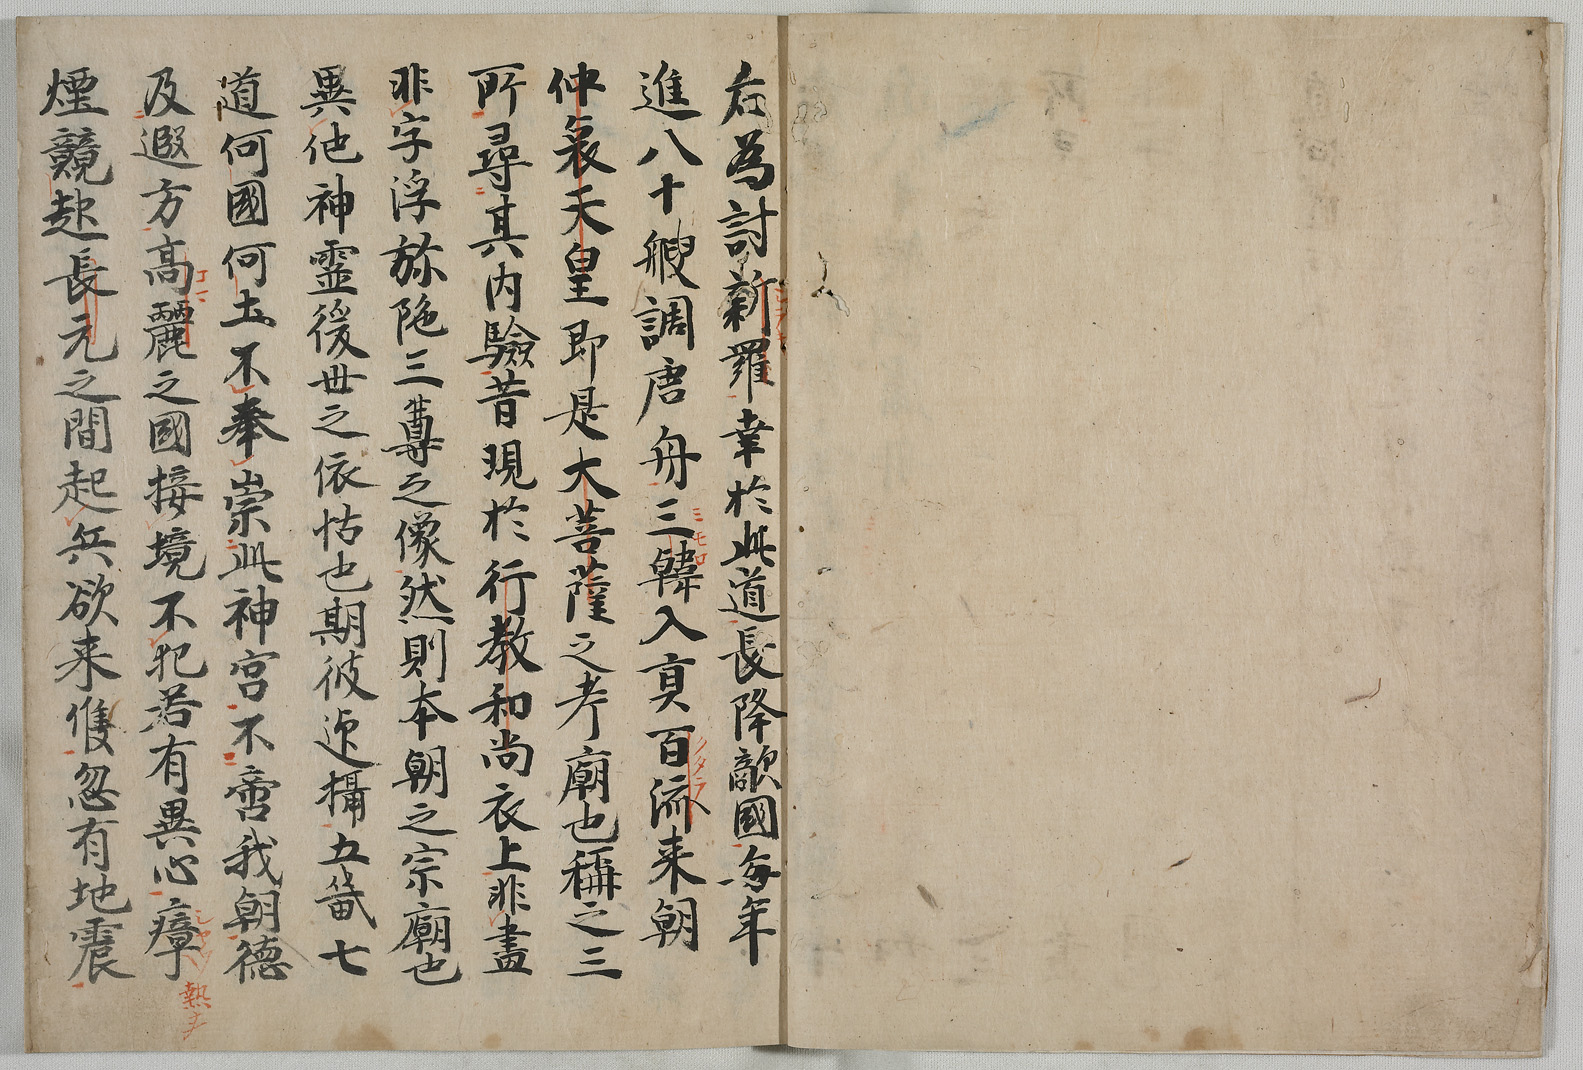 右為討新羅幸於此道長降敵國每年
進八十艘調唐舟三韓入貢百流来朝
仲哀天皇即是大菩薩之考廟也稱之三
所尋其内驗昔現於行教和尚衣上非盡
非字浮弥陁三尊之像然則本朝之宗廟也
異他神靈後世之依怙也期彼迎攝五畿七
道何國何土不奉崇此神宮不啻我朝德
及遐方高麗之國接境不犯若有異心瘴
煙競起長元之間起兵欲来侵忽有地震
ミモロ
クタラ
熱